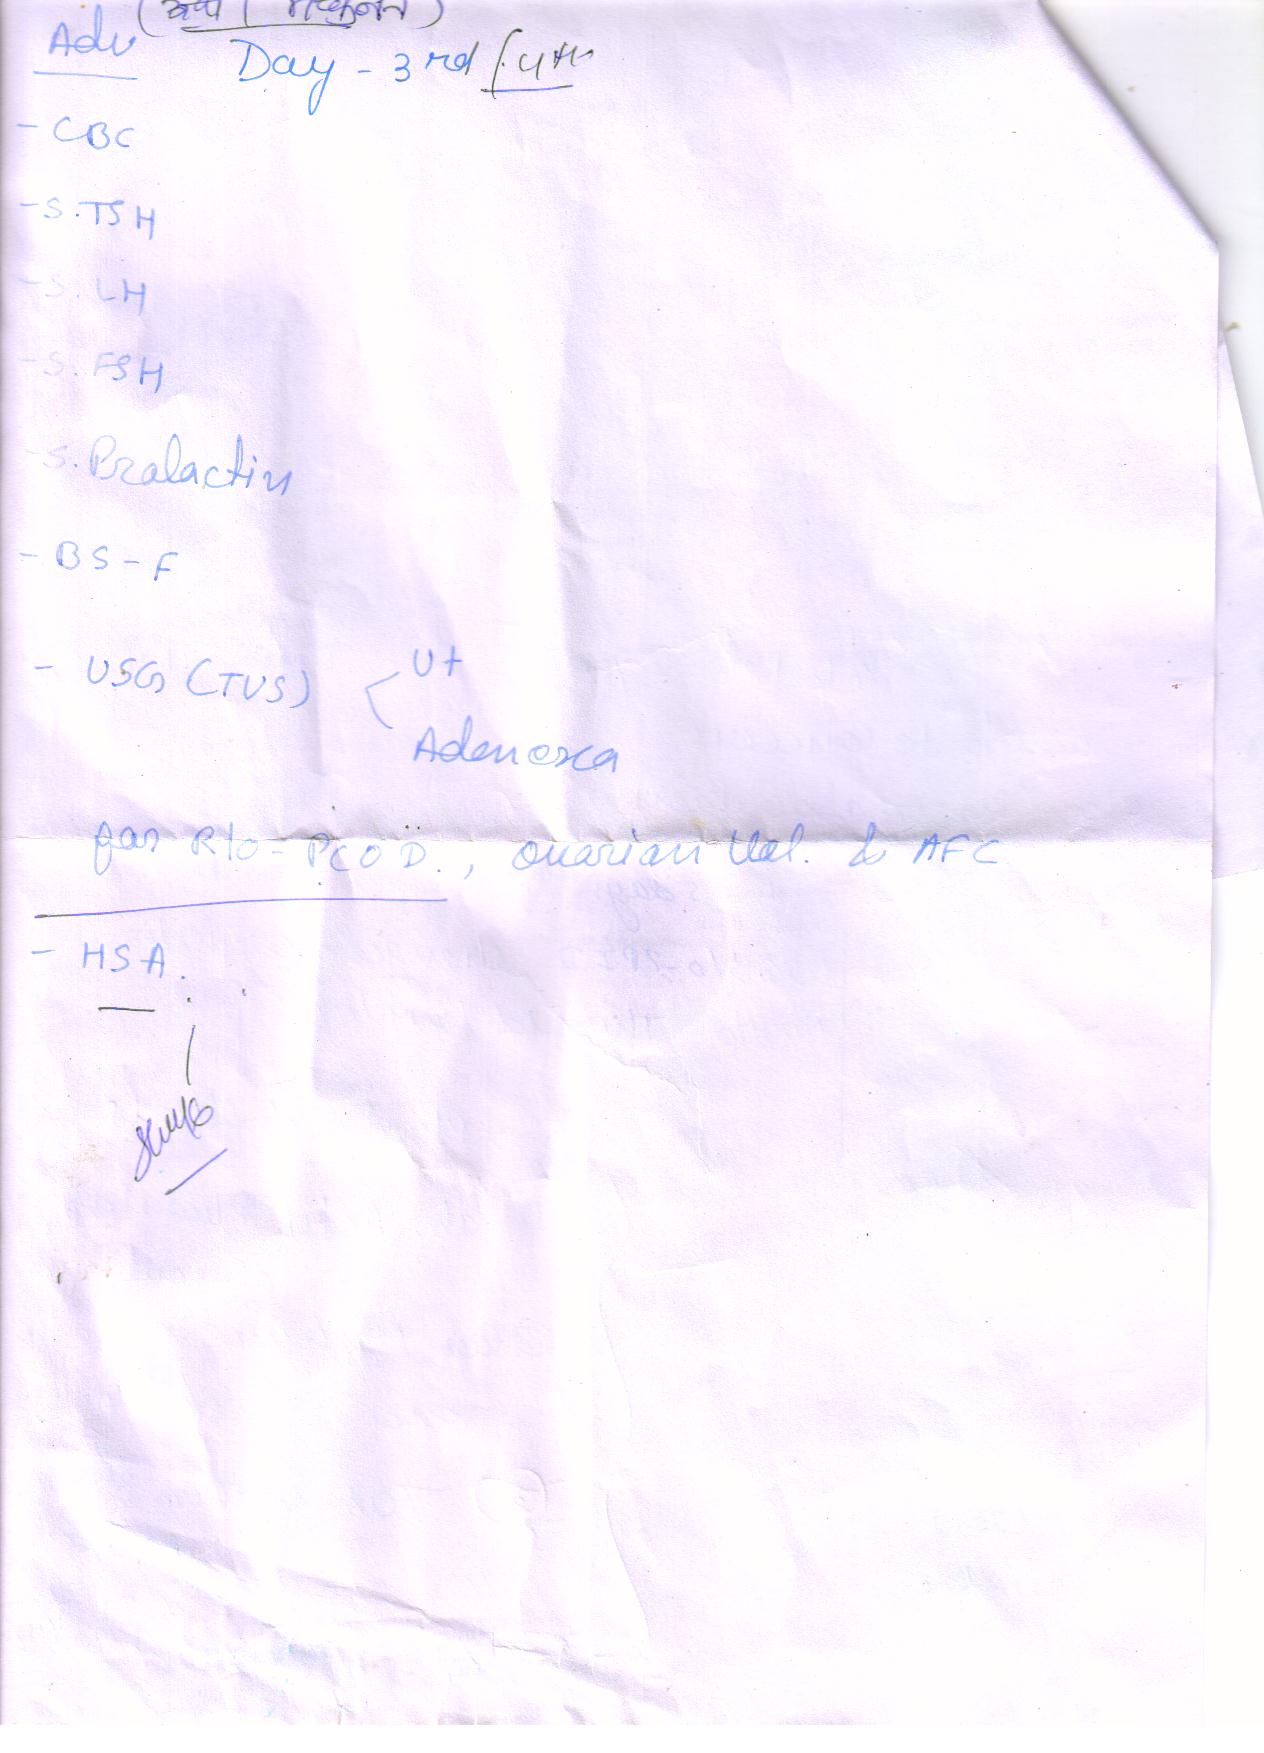 Adv
Day - 3rd / 4th
- CBC
- S. TSH
- S. LH
- S. FSH
- S. Prolactin
- BS - F
- USG (TVS) < Ut
Adenexa
for R/o - PCOD., ovarian Vol. & AFC
- HSA.